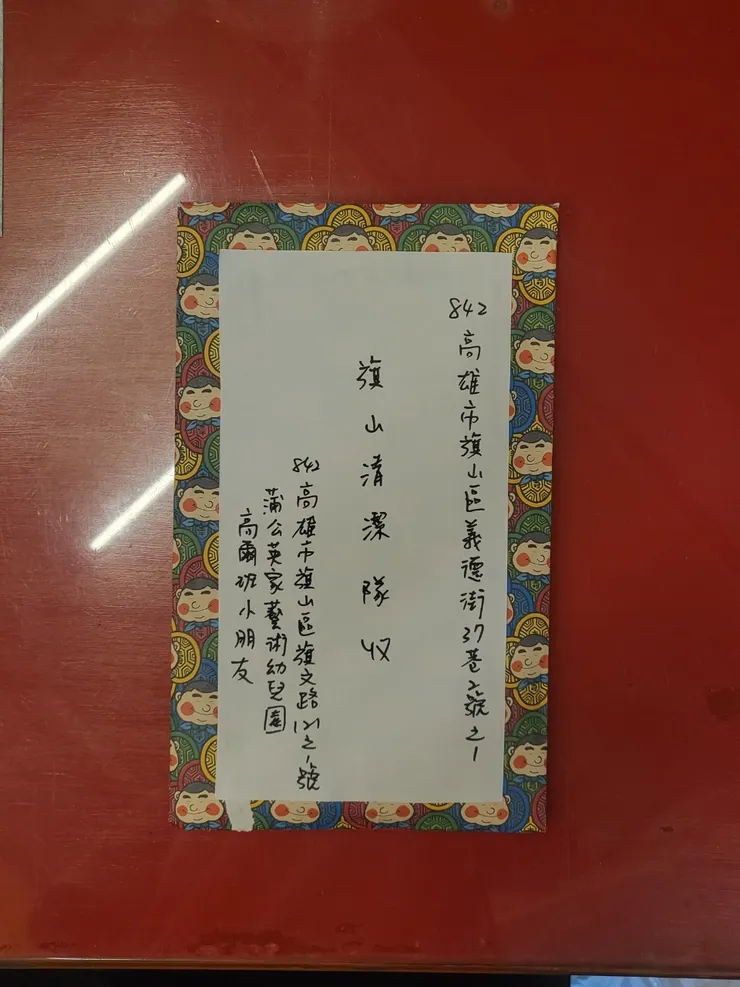 842
高雄市旗山區義德街37巷2號之1
旗山清潔隊收
842
高雄市旗山區旗文路121之1號
蒲公英家藝術幼兒園
高爾班小朋友